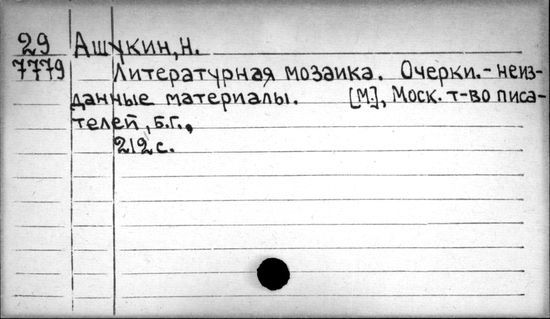 29 Ашукин, Н.
7779 Литературная мозаика. Очерки.-неиз-
данные материалы. [М.], Моск. т-во писа-
телей, б.г.,
212 с.